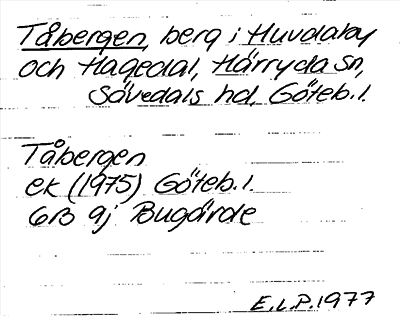 Tåbergen, berg i Huvdaby
och Hagedal, Härryda sn,
Sävedals hd, Göteb. l.
Tåbergen
ek (1975) Göteb. l.
6B 9j Bugärde
E.L.P. 1977